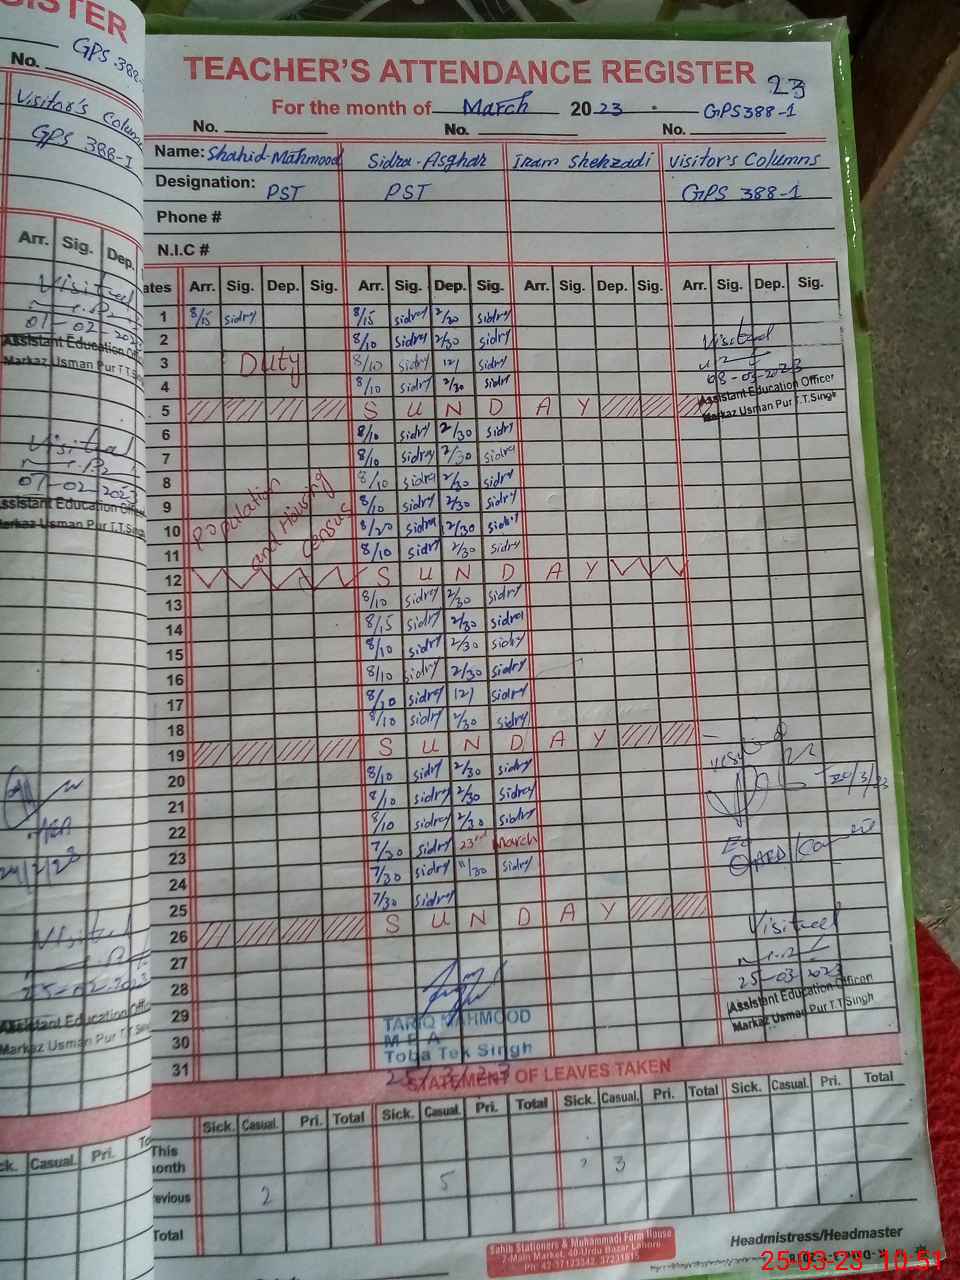 GISTER
No.
GPS.388-
Visitor's Column
GPS 388-I
Arr. Sig. Dep.
Visited
01-02-2023
Assistant Education Offic
Markaz Usman Pur T.T.Sing
Visited
07-02-2023
Assistant Education Offic
Markaz Usman Pur T.T.Singh
24/2/23
Visited
25-02-2023
Assistant Education Offic
Markaz Usman Pur T.T.Singh
Casual. Pri.
TEACHER'S ATTENDANCE REGISTER
23
For the month of March 2023 GPS388-1
No. No. No.
Name: Shahid-Mahmood Sidra-Asghar Iram Shehzadi Visitor's Columns
Designation: PST PST GPS 388-1
Phone #
N.I.C #
ates Arr. Sig. Dep. Sig. Arr. Sig. Dep. Sig. Arr. Sig. Dep. Sig. Arr. Sig. Dep. Sig.
1 8/15 sidry 8/15 sidra 2/30 sidry
2 8/10 sidry 2/30 sidry Visited
3 Duty 8/10 sidry 121 sidry 08-03-2023
4 8/10 sidry 2/30 sidr Assistant Education Officer
5 SUNDAY Markaz Usman Pur T.T.Singh
6 8/10 sidry 2/30 sidry
7 8/10 sidra 2/30 sidra
8 Population 8/10 sidra 2/30 sidry
9 and Housing 8/10 sidry 2/30 sidry
10 census 8/20 sidra 2/30 sidry
11 8/10 sidry 2/30 sidry
12 SUNDAY
13 8/10 sidry 2/30 sidry
14 8/15 sidry 2/30 sidra
15 8/10 sidry 2/30 sidry
16 8/10 sidry 2/30 sidry
17 8/10 sidry 121 sidry
18 8/10 sidry 2/30 sidry
19 SUNDAY
20 8/10 sidry 2/30 sidry
21 8/10 sidry 2/30 sidry
22 8/10 sidry 2/30 sidry
23 7/30 sidry 23rd March
24 7/30 sidry 11/30 sidry
25 7/30 sidry
26 SUNDAY Visited
27
28 25-03-2023
29 TARIQ MAHMOOD Assistant Education Officer
30 M P A Markaz Usman Pur T.T.Singh
31 Toba Tek Singh
25/3/23
STATEMENT OF LEAVES TAKEN
Sick. Casual. Pri. Total Sick. Casual. Pri. Total Sick. Casual. Pri. Total Sick. Casual. Pri. Total
This
month 3
evious 2 5
Total
Sahib Stationers & Muhammadi Form House
7-Main Market, 40-Urdu Bazar Lahore.
Ph: 42-37123342, 37231615
Headmistress/Headmaster
25-03-23 10:51